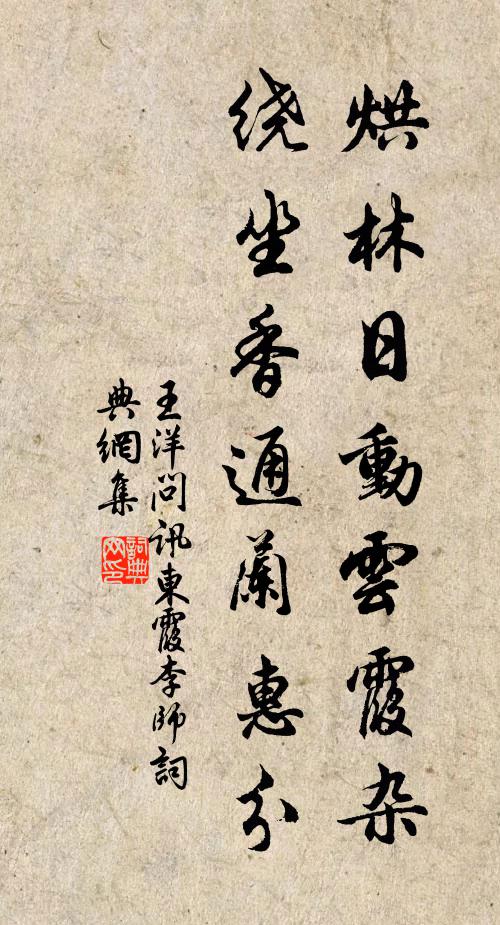 烘林日動雲霞杂
绕坐香通蘭惠分
王洋問訊東霞李師詞
典網集
詞典
网印